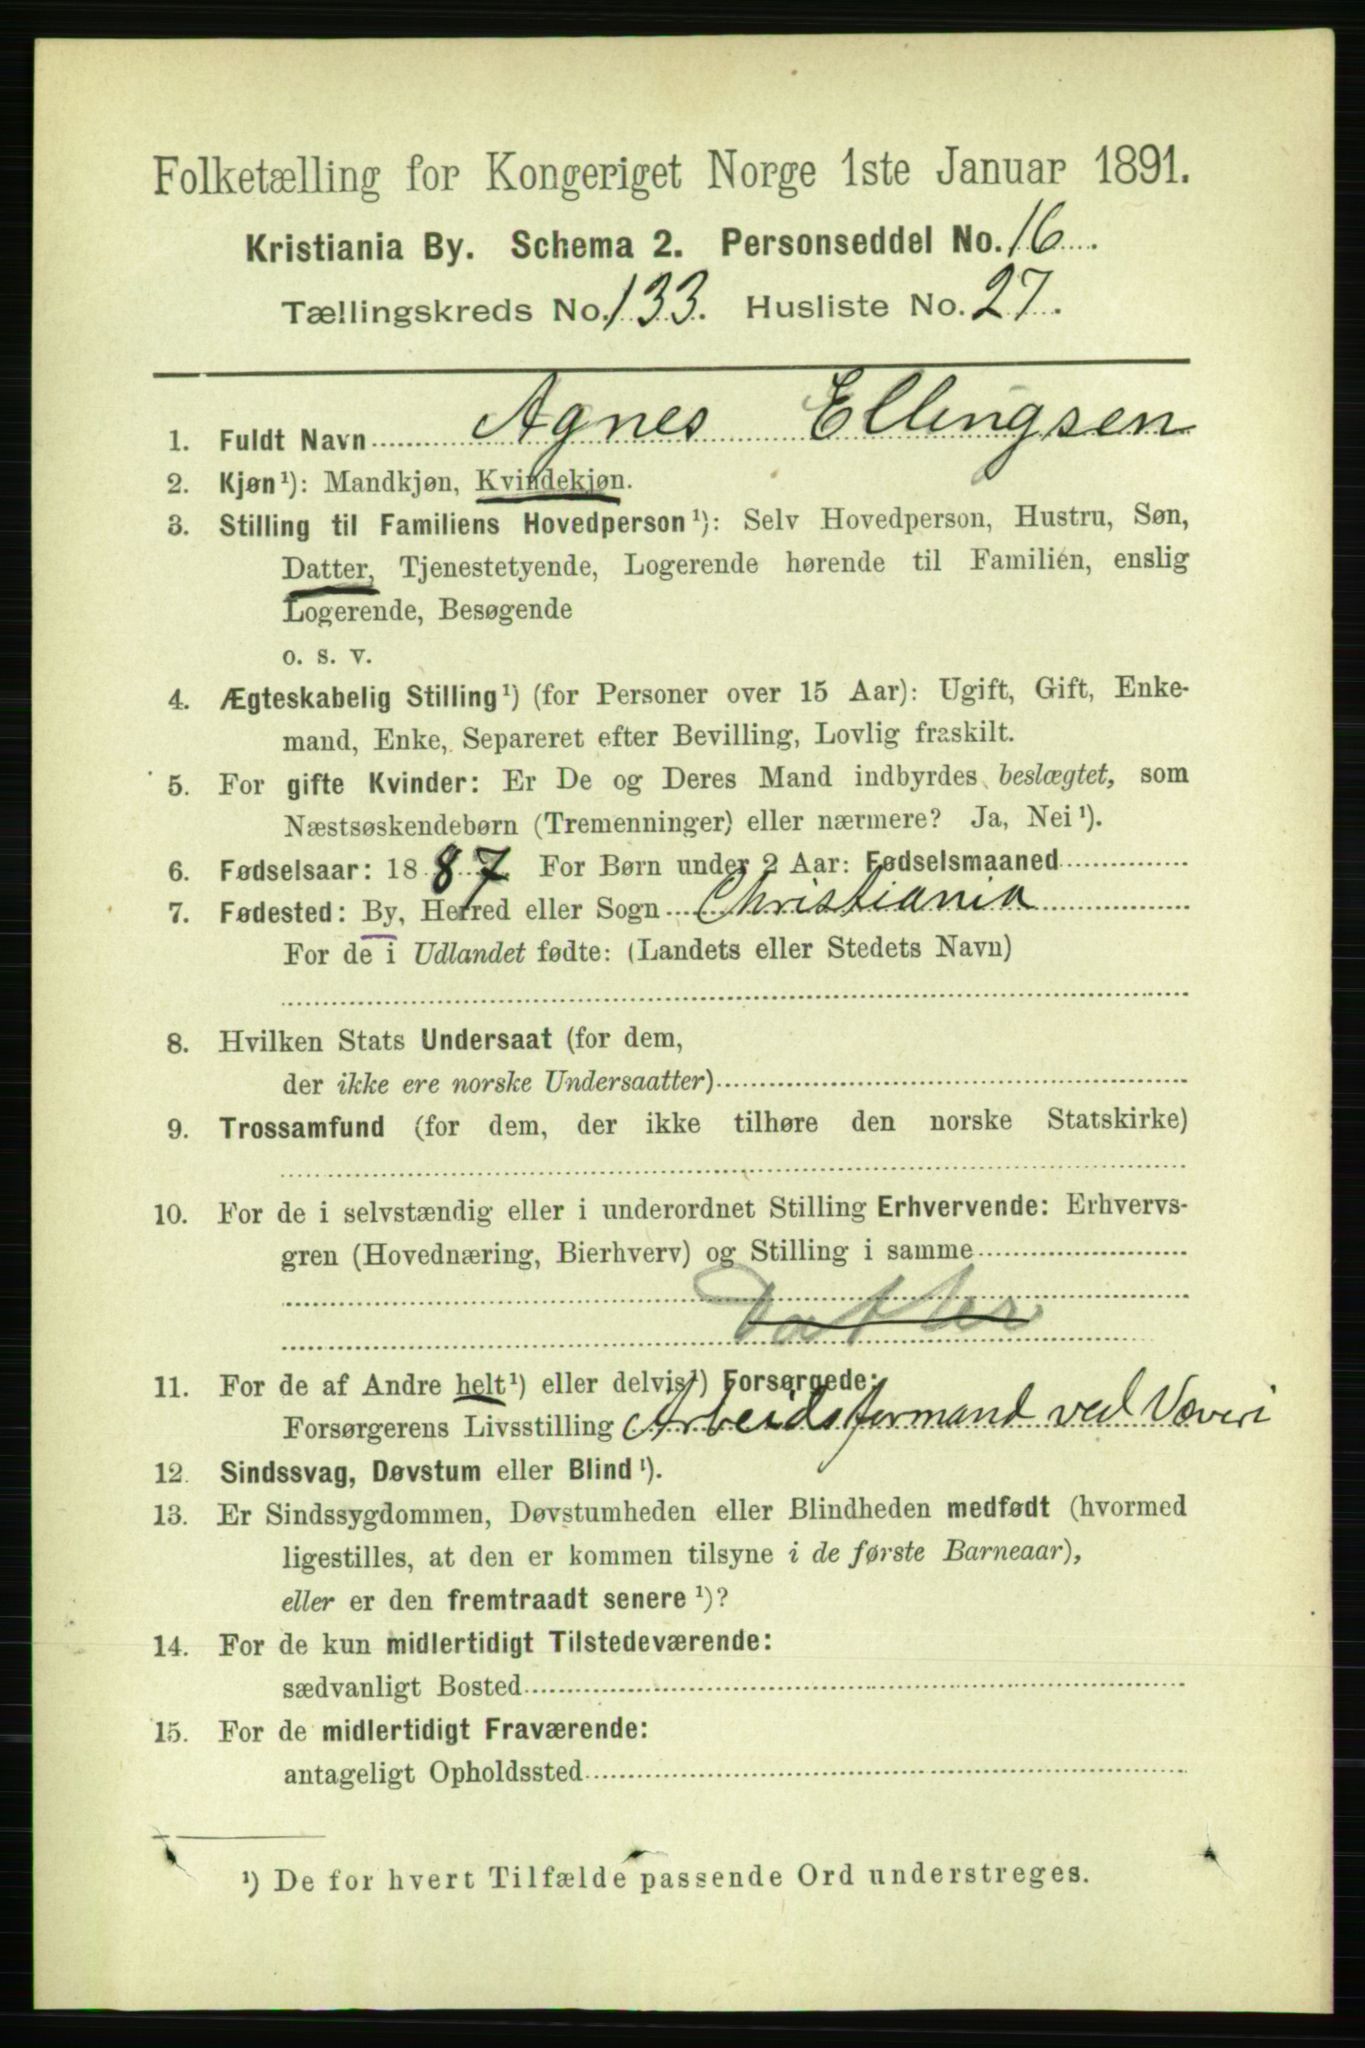 Folketælling for Kongeriget Norge 1ste Januar 1891.
Kristiania By. Schema 2. Personseddel No. 16.
Tællingskreds No. 133. Husliste No. 27.
1. Fuldt Navn Agnes Ellingsen
2. Kjøn¹): Mandkjøn, Kvindekjøn.
3. Stilling til Familiens Hovedperson¹): Selv Hovedperson, Hustru, Søn,
Datter, Tjenestetyende, Logerende hørende til Familien, enslig
Logerende, Besøgende
o. s. v.
4. Ægteskabelig Stilling¹) (for Personer over 15 Aar): Ugift, Gift, Enke-
mand, Enke, Separeret efter Bevilling, Lovlig fraskilt.
5. For gifte Kvinder: Er De og Deres Mand indbyrdes beslægtet, som
Næstsøskendebørn (Tremenninger) eller nærmere? Ja, Nei¹).
6. Fødselsaar: 1887 For Børn under 2 Aar: Fødselsmaaned
7. Fødested: By, Herred eller Sogn Christiania
For de i Udlandet fødte: (Landets eller Stedets Navn)
8. Hvilken Stats Undersaat (for dem,
der ikke ere norske Undersaatter)
9. Trossamfund (for dem, der ikke tilhøre den norske Statskirke)
10. For de i selvstændig eller i underordnet Stilling Erhvervende: Erhvervs-
gren (Hovednæring, Bierhverv) og Stilling i samme
Datter
11. For de af Andre helt¹) eller delvis¹) Forsørgede:
Forsørgerens Livsstilling Arbeidsformand ved Væveri
12. Sindssvag, Døvstum eller Blind¹).
13. Er Sindssygdommen, Døvstumheden eller Blindheden medfødt (hvormed
ligestilles, at den er kommen tilsyne i de første Barneaar),
eller er den fremtraadt senere¹)?
14. For de kun midlertidigt Tilstedeværende:
sædvanligt Bosted
15. For de midlertidigt Fraværende:
antageligt Opholdssted
¹) De for hvert Tilfælde passende Ord understreges.